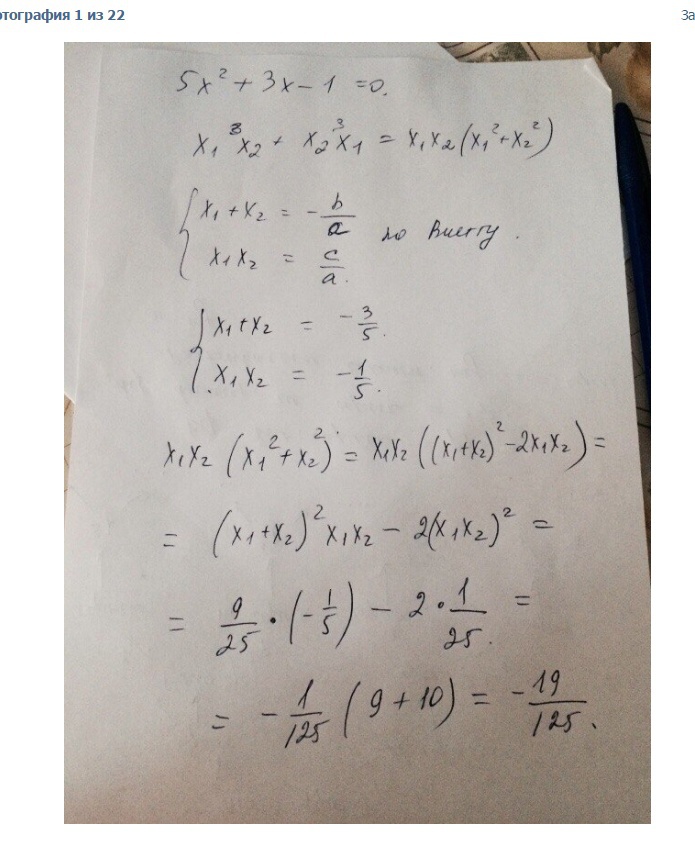 отография 1 из 22
За
5x² + 3x - 1 = 0.
x₁³x₂ + x₂³x₁ = x₁x₂(x₁² + x₂²)
x₁ + x₂ = - b/a по Виету.
x₁x₂ = c/a.
x₁ + x₂ = - 3/5.
x₁x₂ = - 1/5.
x₁x₂(x₁² + x₂²) = x₁x₂((x₁ + x₂)² - 2x₁x₂) =
= (x₁ + x₂)²x₁x₂ - 2(x₁x₂)² =
= 9/25 · (- 1/5) - 2 · 1/25. =
= - 1/125 (9 + 10) = - 19/125.